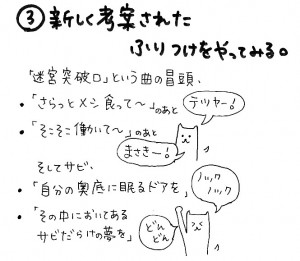 ③新しく考案された
ふりつけをやってみる。
「迷宮突破口」という曲の冒頭、
・「さらっとメシ食って〜」のあと
テツヤー!
・「そこそこ働いて〜」のあと
まさきー!
そしてサビ、
・「自分の奥底に眠るドアを」
ノック
ノック
・「その中においてある
サビだらけの夢を」
どん
どん